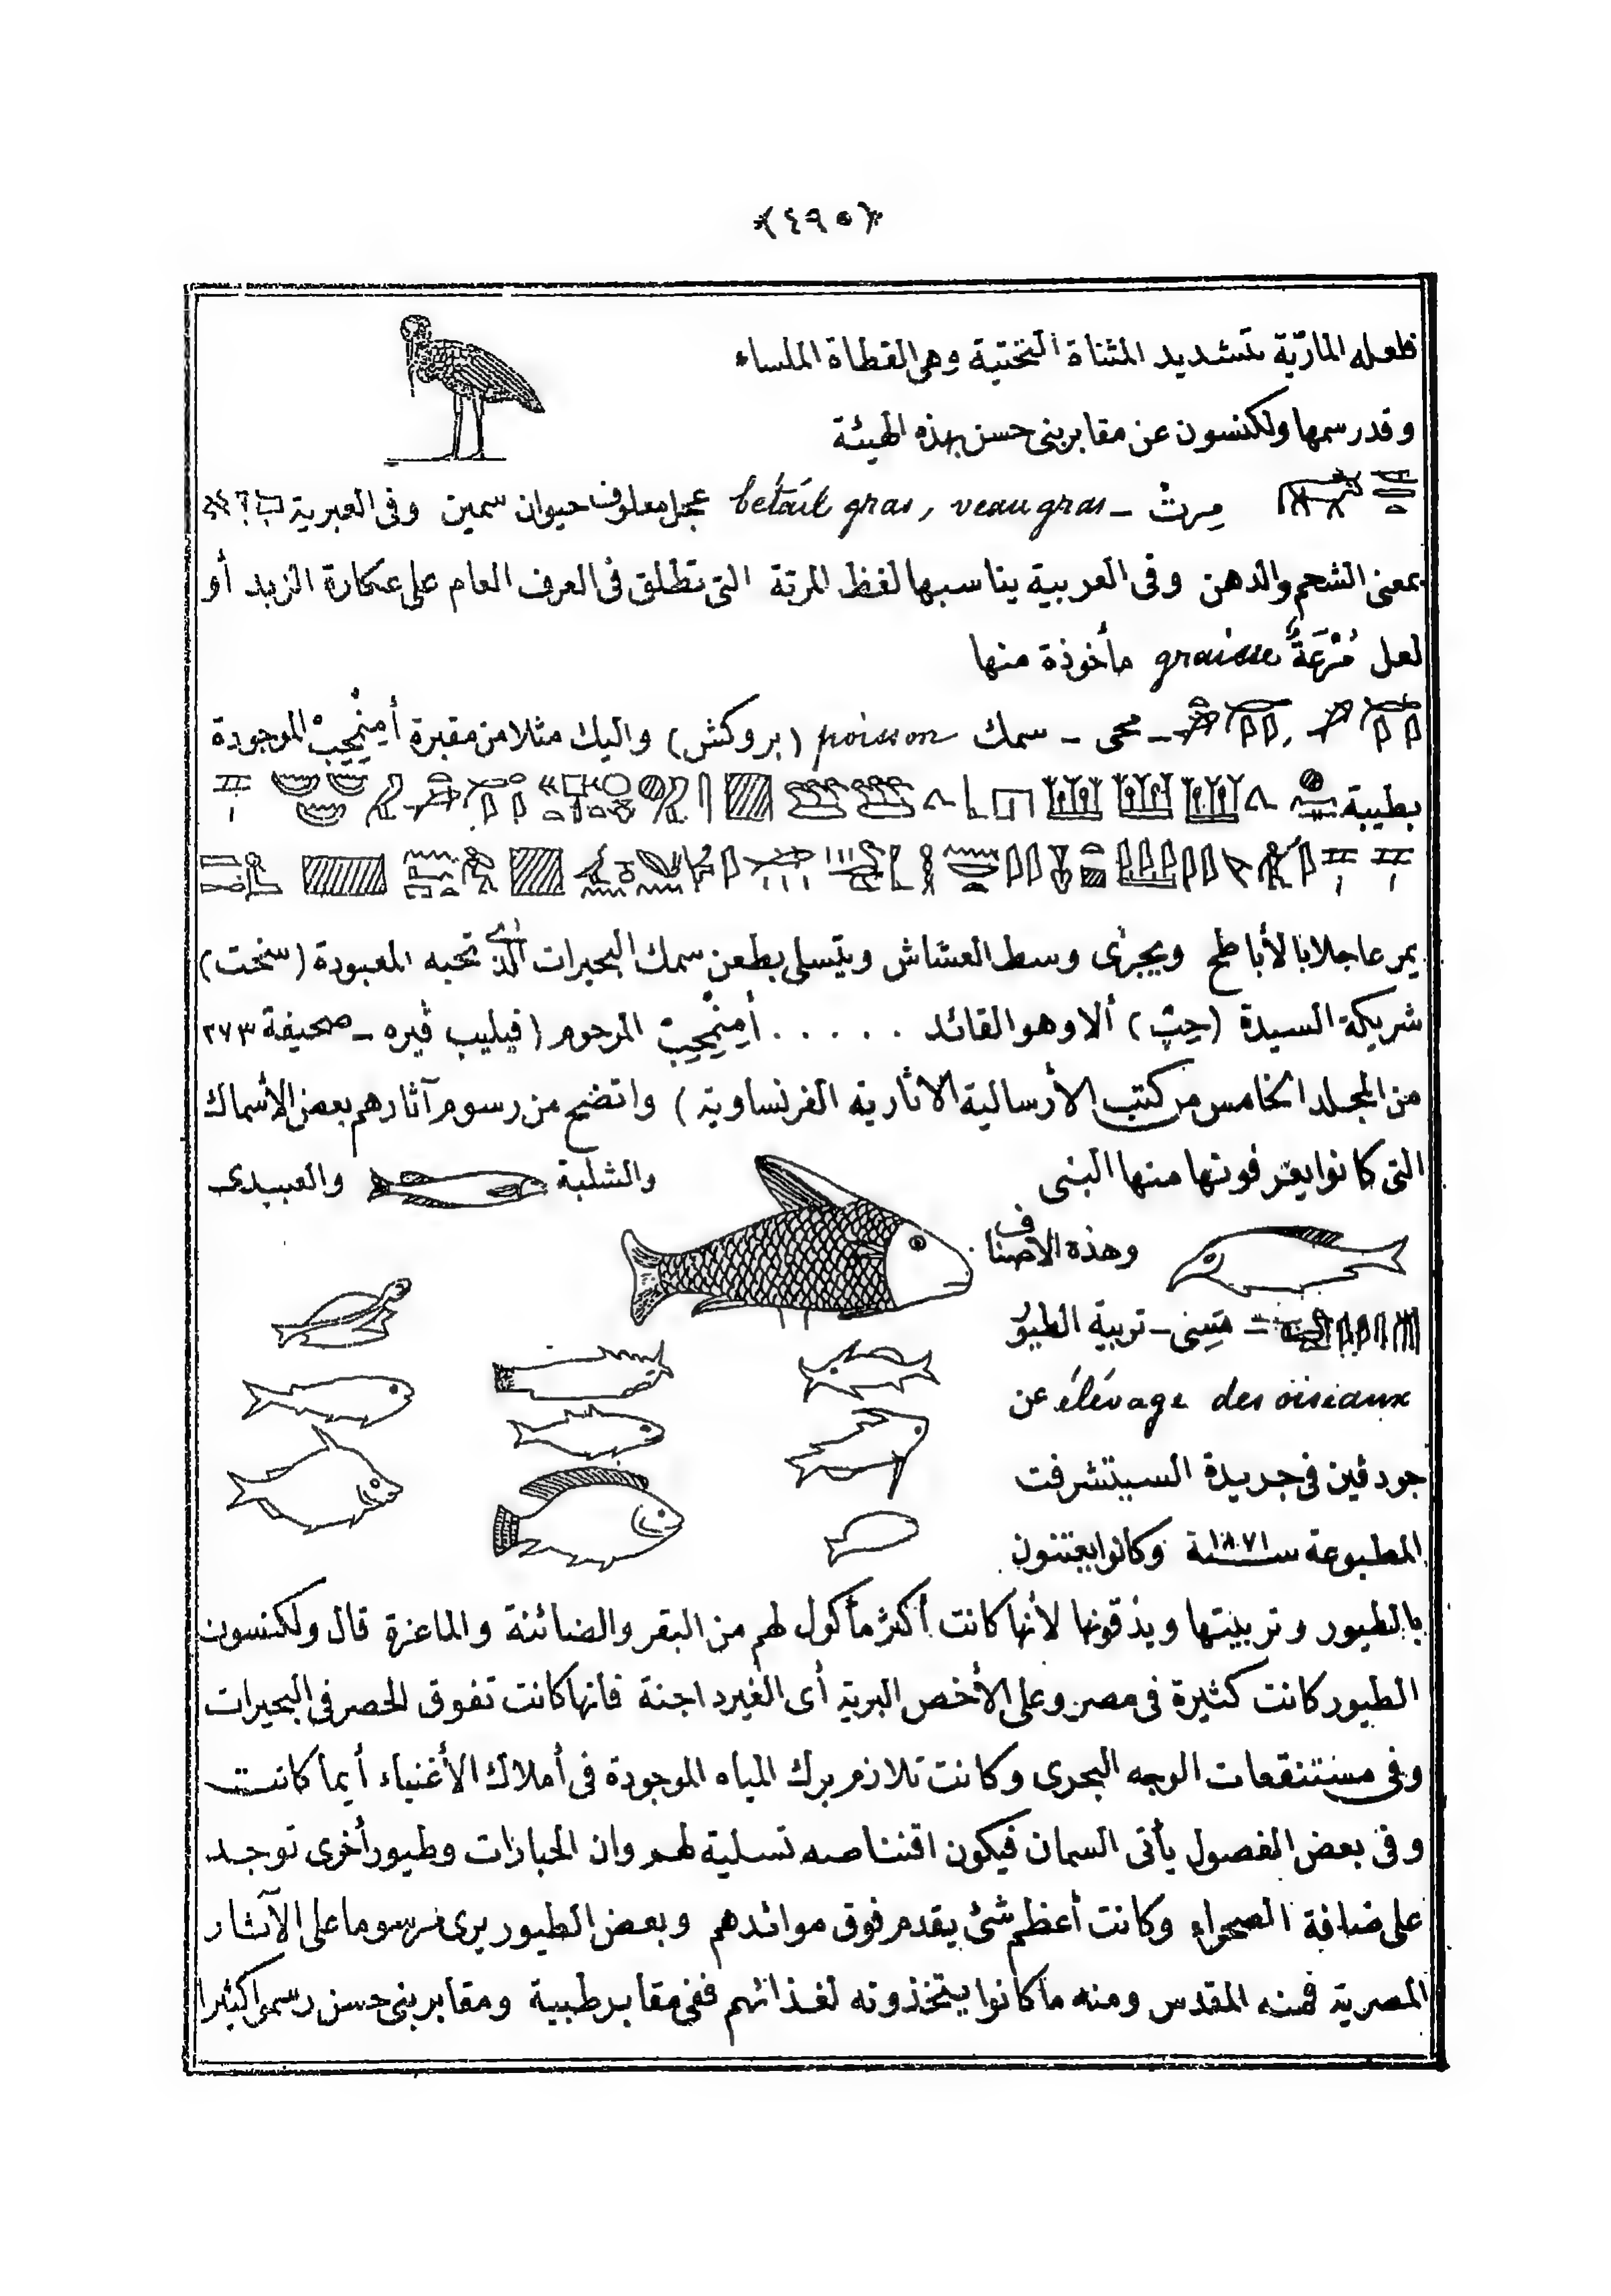 ﴿٤٩٥﴾
فلعله الماريّة بتشديد المثناة التحتية وهى القطاة الملساء
وقد رسمها ولكنسون عن مقابر بنى حسن بهذه الهيئة
مِرِتْ - bétail gras, veau gras عجل معلوف حيوان سمين وفى العبرية
بمعنى الشحم والدهن وفى العربية يناسبها لفظ المرتة التى تطلق فى العرف العام على عكارة الزبد أو
لعل graisse مأخوذة منها
- محى - سمك poisson (بروكش) واليك مثلا من مقبرة أَمِنْمِحِبْ الموجودة
بطيبة
يمر عاجلا بالأباطح ويجرى وسط العشاش ويتسلى بطعن سمك البحيرات الذى تحبه المعبودة (سخت)
شريكة السيدة (حِبْ) ألا وهو القائد ..... أَمِنْمِحِبْ المرحوم (فيليب ڤيره - صحيفة ٢٧٣
من المجلد الخامس من كتب الأرسالية الاثارية الفرنساوية) واتضح من رسوم آثارهم بعض الأسماك
التى كانوا يعرفونها منها البنى والشلبة والعبيدى
وهذه الاصناف
- مَنِسى - تربية الطيور
élévage des oiseaux عن
جودڤين فى جريدة السيتشرفت
المطبوعة سنة ١٨٧١ وكانوا يعتنون
بالطيور وتربيتها ويذقونها لأنها كانت أكثر مأكول لهم من البقر والضائنة والماعزة قال ولكنسون
الطيور كانت كثيرة فى مصر وعلى الأخص البرية أى الغير داجنة فانها كانت تفوق الحصر فى البحيرات
وفى مستنقعات الوجه البحرى وكانت تلازم برك المياه الموجودة فى أملاك الأغنياء أيما كانت
وفى بعض الفصول يأتى السمان فيكون اقتناصه تسلية لهم وان الحبارات وطيور أخرى توجد
على ضافة الصحراء وكانت أعظم شئ يقدم فوق موائدهم وبعض الطيور يرى مرسوما على الآثار
المصرية فمنه المقدس ومنه ما كانوا يتخذونه لغذائهم ففى مقابر طيبة ومقابر بنى حسن رسموا كثيرا